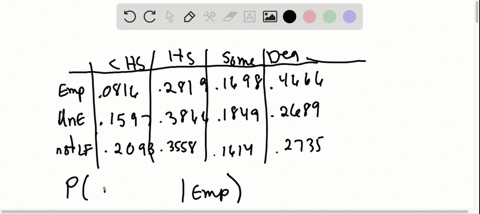 < HS HS Some Deg
Emp .0816 .2819 .1698 .4666
UnE .1597 .3866 .1849 .2689
notLF .2093 .3558 .1614 .2735
P( | Emp)